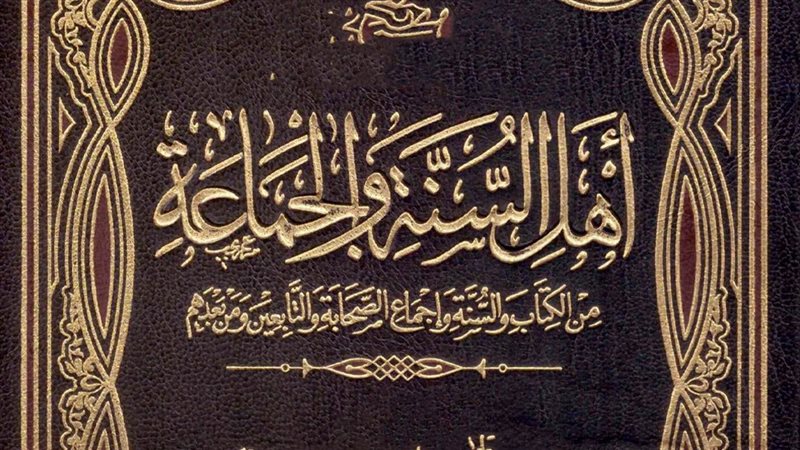 أَهْلِ السُّنَّةِ وَالْجَمَاعَةِ
مِنَ الكِتَابِ وَالسُّنَّةِ وَإِجْمَاعِ الصَّحَابَةِ وَالتَّابِعِينَ وَمَنْ بَعْدَهُمْ